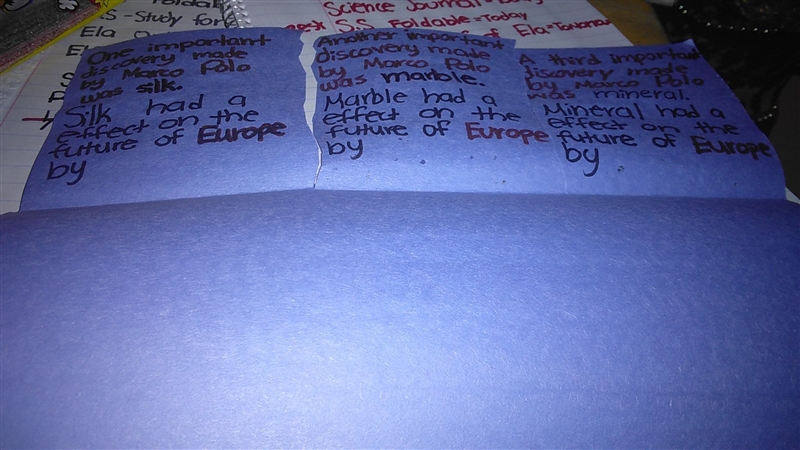 Foldab
Science Journal - Today
S.S. Foldable - Today
S - Study for
Ela
of Ela - Tomorrow
One important
discovery made
by Marco Polo
was silk.
Silk had a
effect on the
future of Europe
by
Another important
discovery made
by Marco Polo
was marble.
Marble had a
effect on the
future of Europe
by
A third important
discovery made
by Marco Polo
was mineral.
Mineral had a
effect on the
future of Europe
by